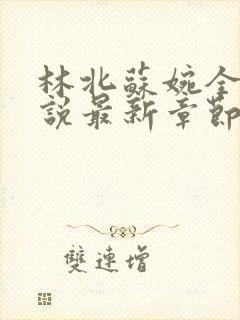 林北蘇婉全
說最新章節
雙連增